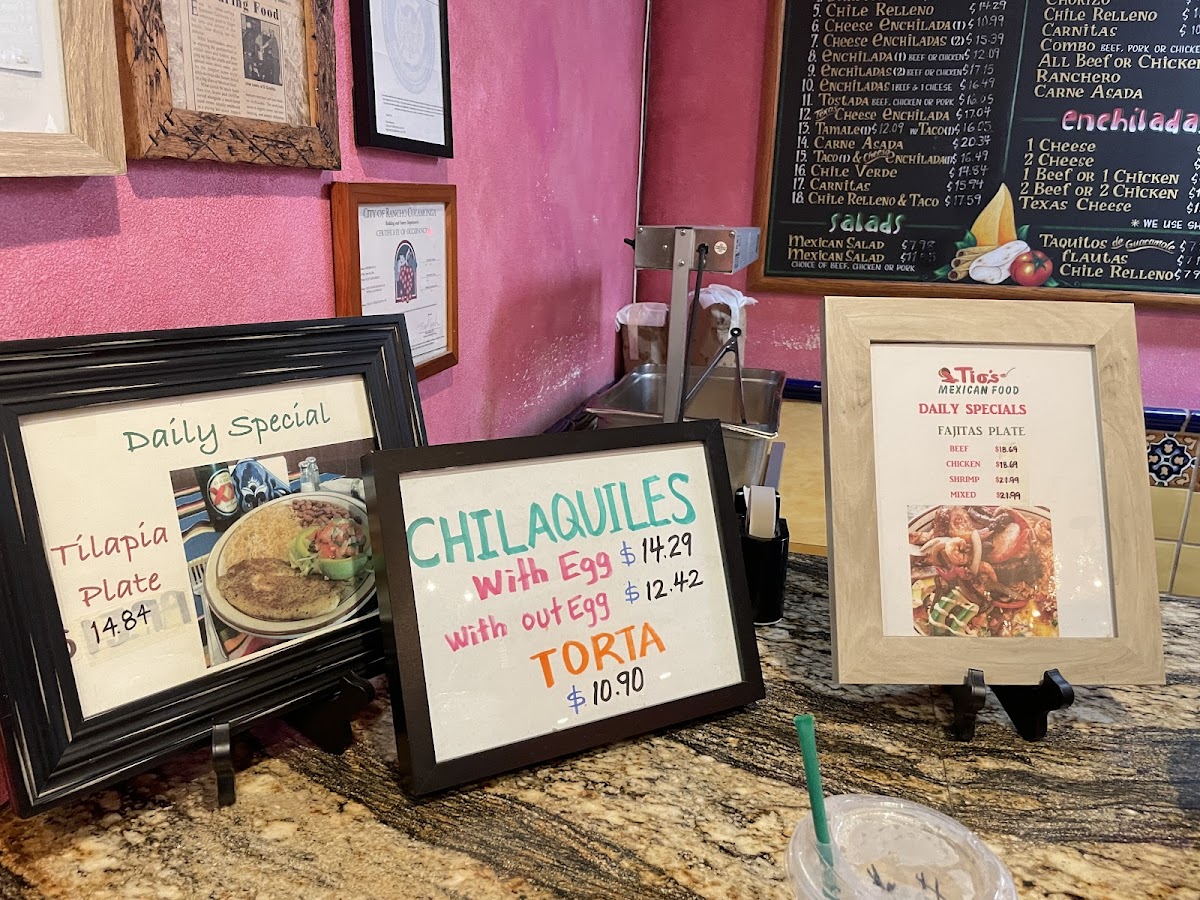 ring Food
CITY OF RANCHO CUCAMONGA
Building and Safety Department
CERTIFICATE OF OCCUPANCY
5. CHILE RELLENO $14.29
6. CHEESE ENCHILADA (1) $10.99
7. CHEESE ENCHILADAS (2) $15.39
8. ENCHILADA (1) BEEF OR CHICKEN $12.09
9. ENCHILADAS (2) BEEF OR CHICKEN $17.15
10. ENCHILADAS 1 BEEF & 1 CHEESE $16.49
11. TOSTADA BEEF, CHICKEN OR PORK $16.05
12. TEXAS CHEESE ENCHILADA $17.04
13. TAMALE (1) $12.09 W/TACO (1) $16.05
14. CARNE ASADA $20.34
15. TACO (1) & CHEESE ENCHILADA (1) $16.49
16. CHILE VERDE $14.84
17. CARNITAS $15.94
18. CHILE RELLENO & TACO $17.59
SALADS
MEXICAN SALAD $7.98
MEXICAN SALAD
CHOICE OF BEEF, CHICKEN OR PORK
CHORIZO
CHILE RELLENO $
CARNITAS $
COMBO BEEF, PORK OR CHICKE
ALL BEEF OR CHICKEN
RANCHERO
CARNE ASADA
ENCHILADA
1 CHEESE
2 CHEESE
1 BEEF OR 1 CHICKEN
2 BEEF OR 2 CHICKEN
TEXAS CHEESE
* WE USE SH
TAQUITOS de Guacamole $7
FLAUTAS
CHILE RELLENO $7
Daily Special
Tilapia
Plate
$14.84
CHILAQUILES
With Egg $14.29
With out Egg $12.42
TORTA
$10.90
Tio's
MEXICAN FOOD
DAILY SPECIALS
FAJITAS PLATE
BEEF $18.69
CHICKEN $18.69
SHRIMP $21.99
MIXED $21.99